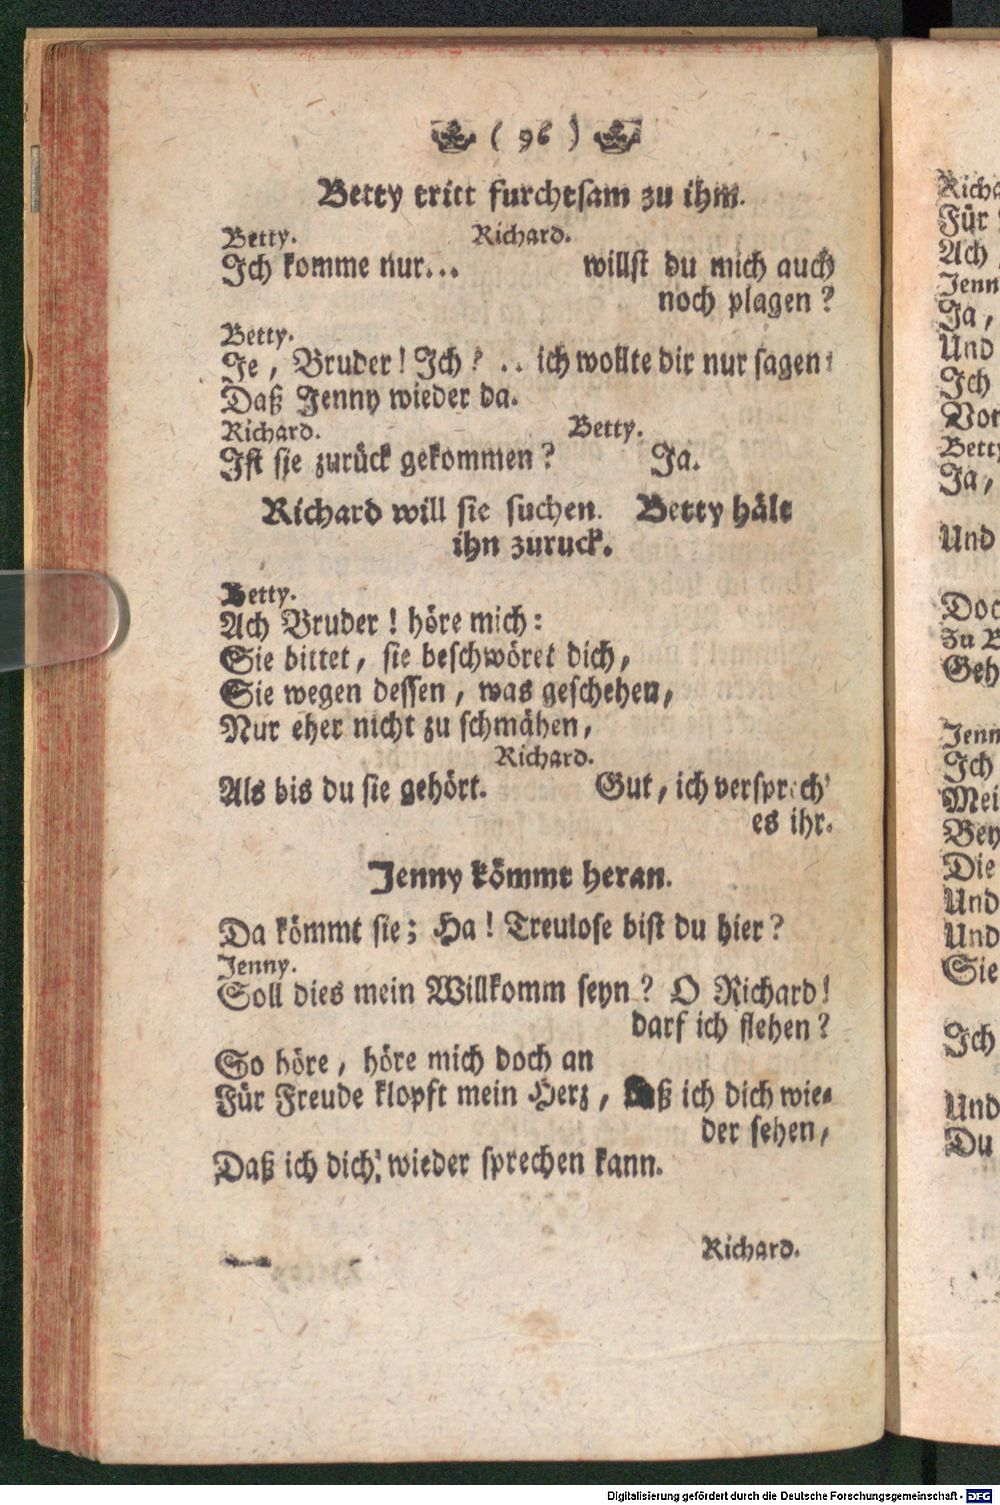 ( 96 )
Betty tritt furchtsam zu ihm.
Betty. Richard.
Ich komme nur... willst du mich auch
noch plagen?
Betty.
Je, Bruder! Ich? .. ich wollte dir nur sagen:
Daß Jenny wieder da.
Richard. Betty.
Ist sie zurück gekommen? Ja.
Richard will sie suchen. Betty hält
ihn zuruck.
Betty.
Ach Bruder! höre mich:
Sie bittet, sie beschwöret dich,
Sie wegen dessen, was geschehen,
Nur eher nicht zu schmähen,
Richard.
Als bis du sie gehört. Gut, ich versprech'
es ihr.
Jenny kömmt heran.
Da kömmt sie; Ha! Treulose bist du hier?
Jenny.
Soll dies mein Willkomm seyn? O Richard!
darf ich flehen?
So höre, höre mich doch an
Für Freude klopft mein Herz, daß ich dich wie-
der sehen,
Daß ich dich wieder sprechen kann.
Richard.
Richa
Für
Ach
Jenn
Ja,
Und
Ich
Vor
Betty
Ja,
Und
Doc
Zu B
Geh
Jenn
Ich
Mei
Bey
Die
Und
Und
Sie
Ich
Und
Du
Digitalisierung gefördert durch die Deutsche Forschungsgemeinschaft - DFG